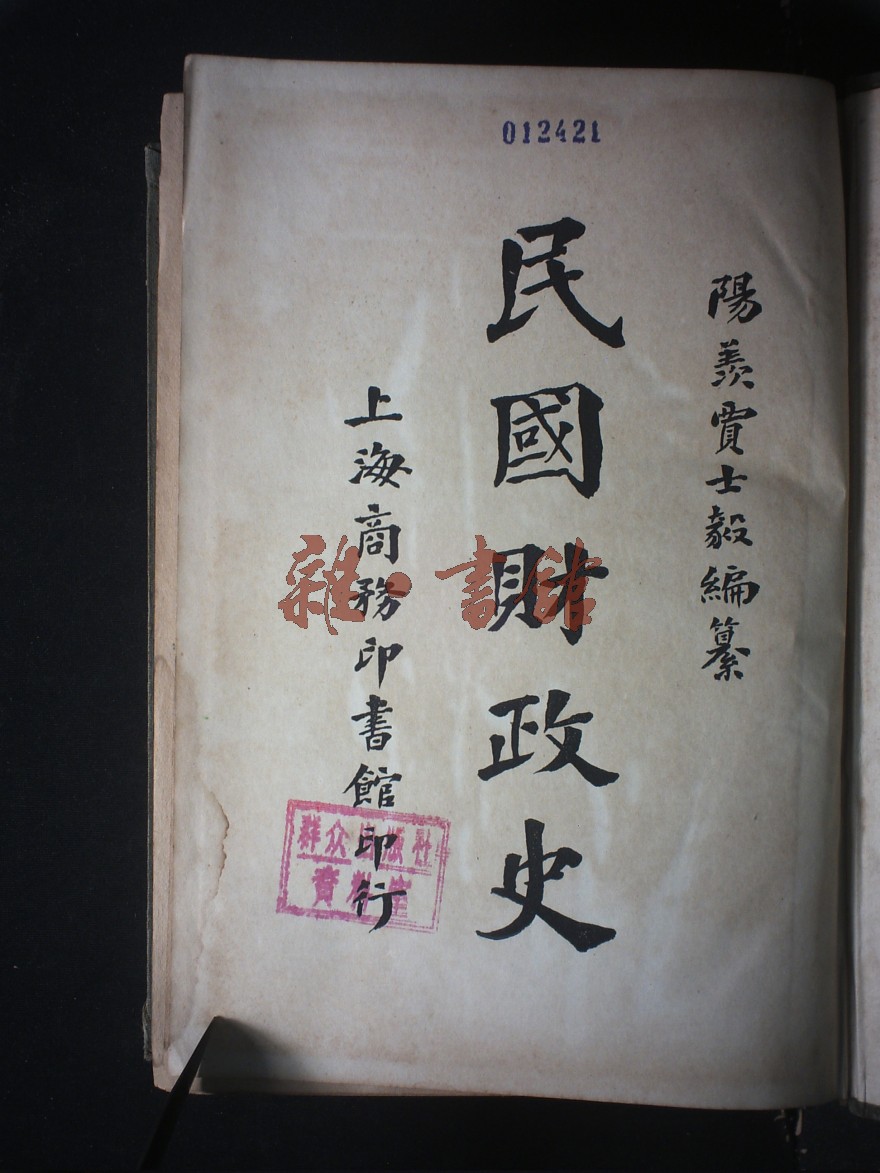 012421
陽羨賈士毅編纂
民國財政史
上海商務印書館印行
群众出版社
資料室
雜·書館